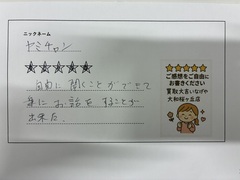 ニックネーム
ヤミチャン
★★★★★
自由に聞くことができて
楽にお話をすることが
出来た.
★★★★★
ご感想をご自由に
お書きください
買取大吉いなげや
大和桜ヶ丘店